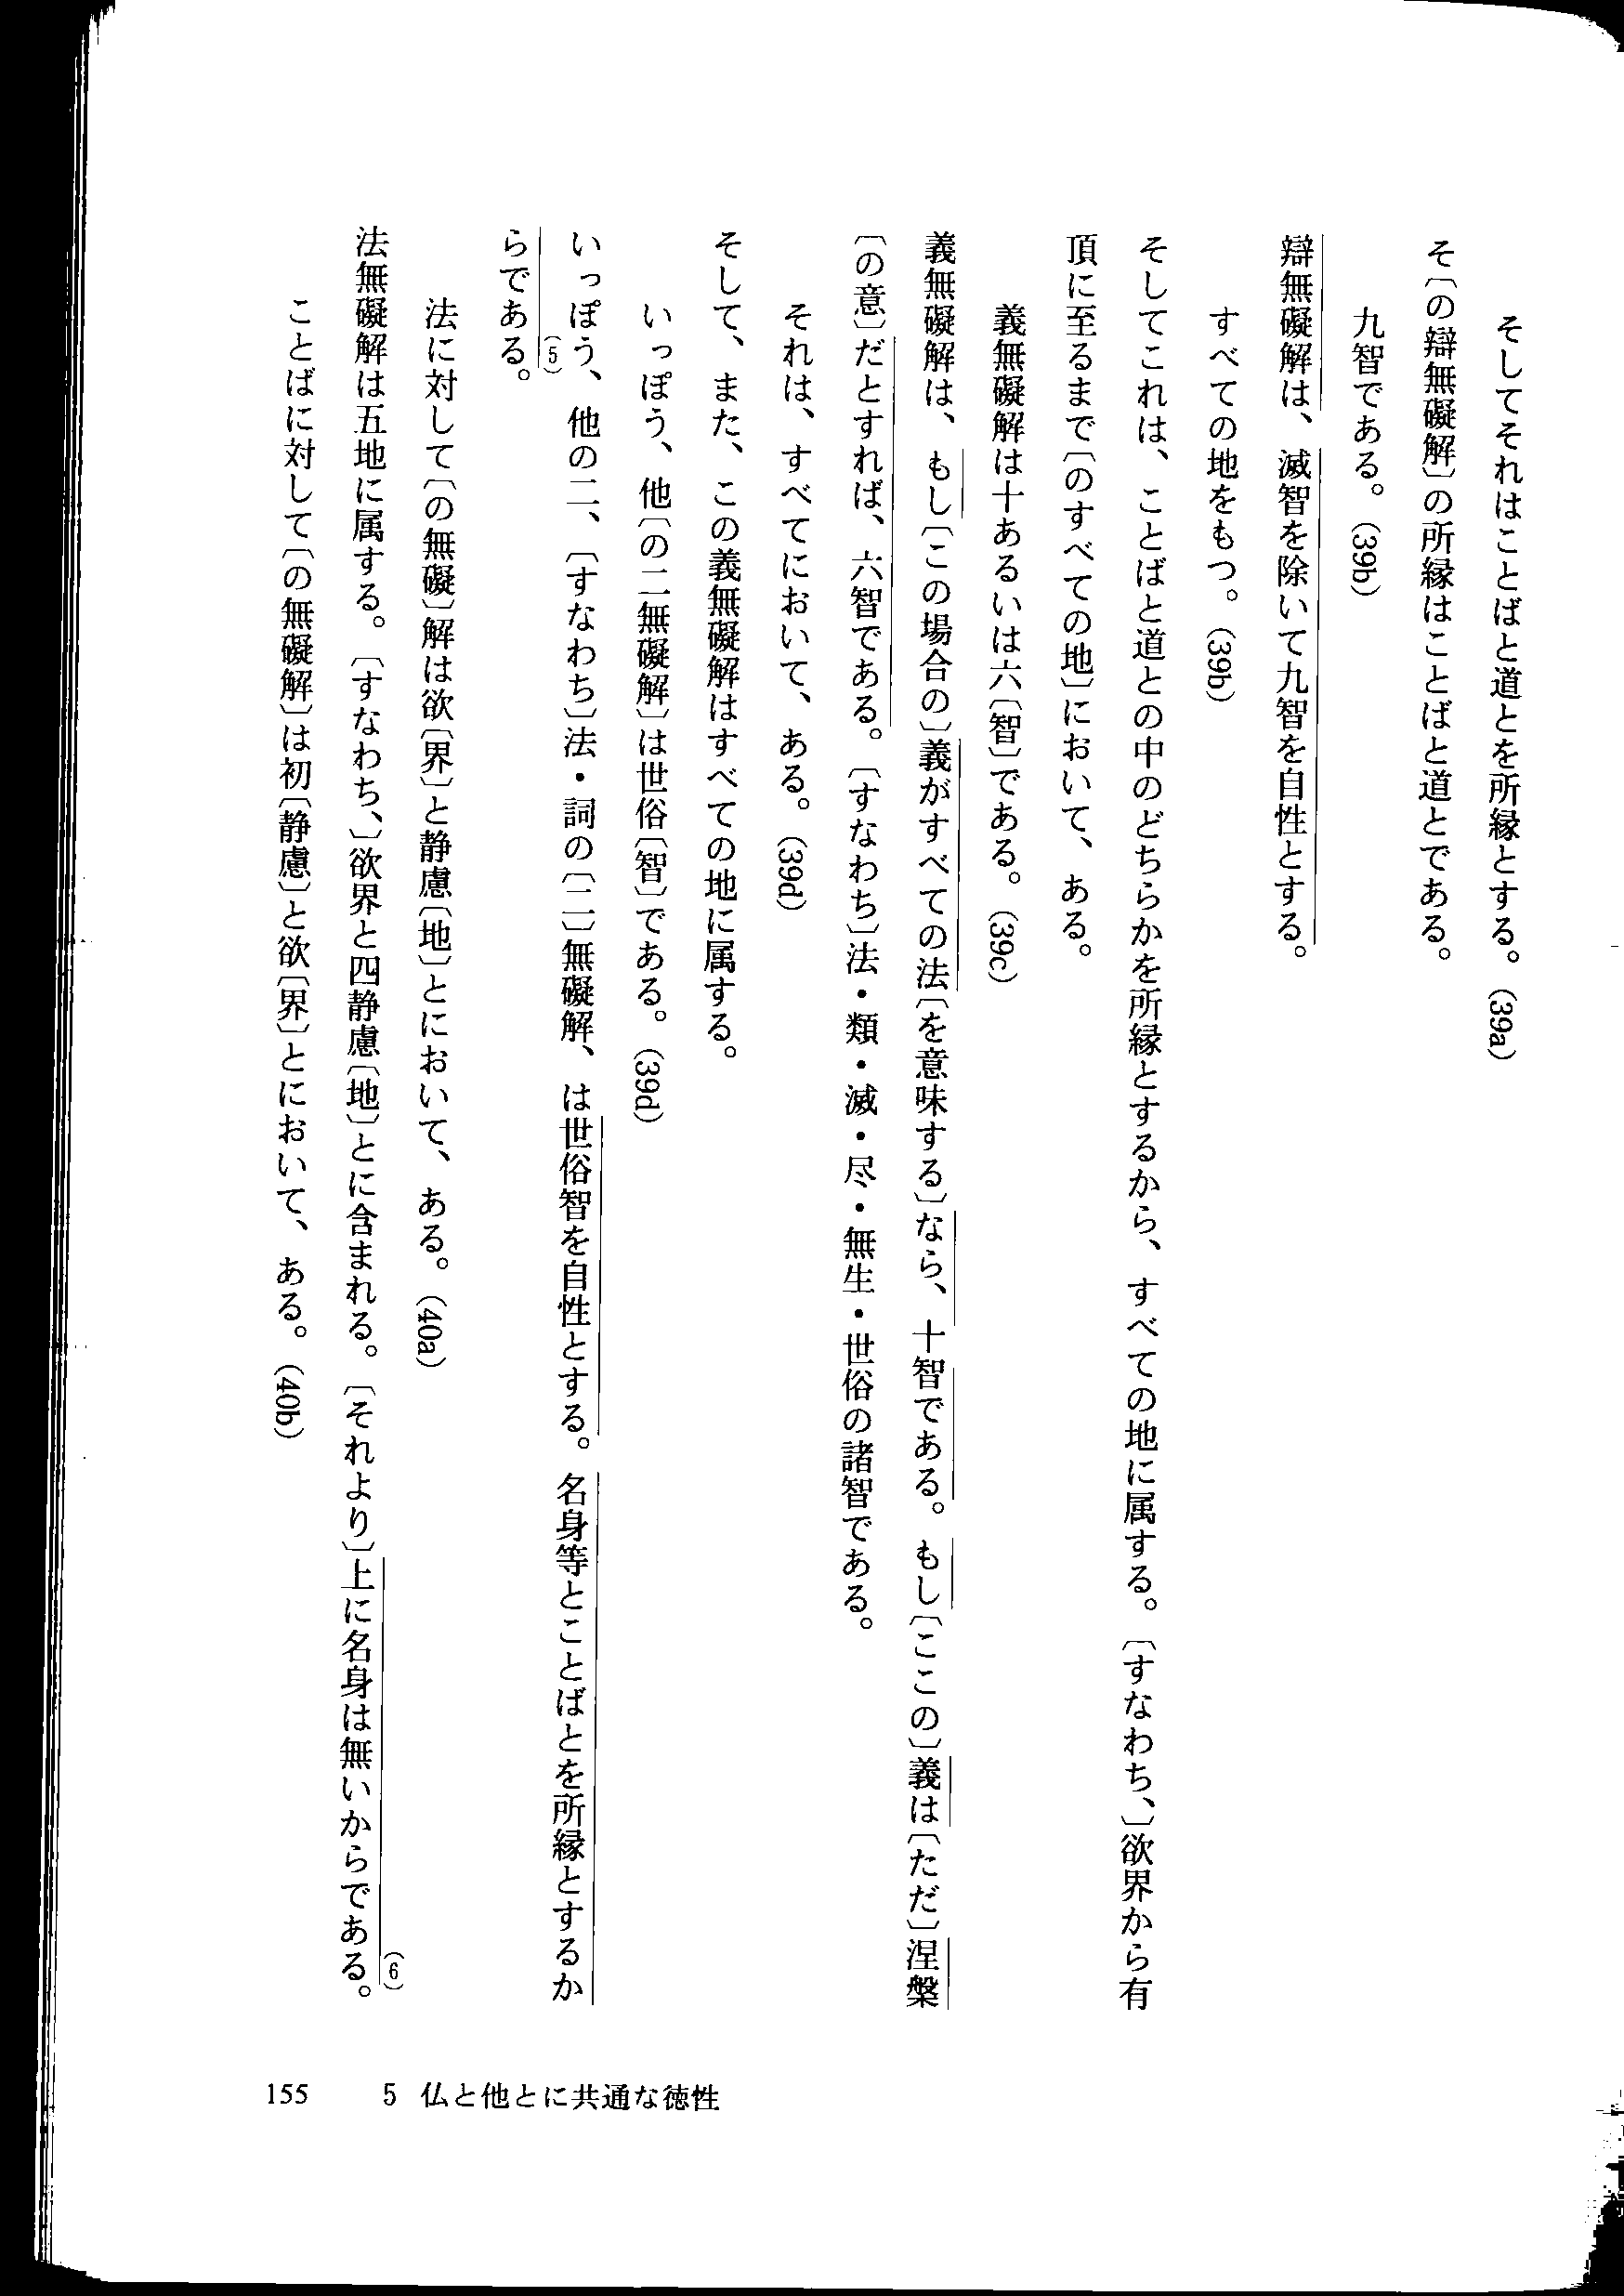 そしてそれはことばと道とを所縁とする。(39a)
そ〔の辯無礙解〕の所縁はことばと道とである。
九智である。(39b)
辯無礙解は、滅智を除いて九智を自性とする。
すべての地をもつ。(39b)
そしてこれは、ことばと道との中のどちらかを所縁とするから、すべての地に属する。〔すなわち、〕欲界から有
頂に至るまで〔のすべての地〕において、ある。
義無礙解は十あるいは六〔智〕である。(39c)
義無礙解は、もし〔この場合の〕義がすべての法〔を意味する〕なら、十智である。もし〔ここの〕義は〔ただ〕涅槃
〔の意〕だとすれば、六智である。〔すなわち〕法・類・滅・尽・無生・世俗の諸智である。
それは、すべてにおいて、ある。(39d)
そして、また、この義無礙解はすべての地に属する。
いっぽう、他〔の二無礙解〕は世俗〔智〕である。(39d)
いっぽう、他の二、〔すなわち〕法・詞の〔二〕無礙解、は世俗智を自性とする。名身等とことばとを所縁とするか
らである。(5)
法に対して〔の無礙〕解は欲〔界〕と静慮〔地〕とにおいて、ある。(40a)
法無礙解は五地に属する。〔すなわち、〕欲界と四静慮〔地〕とに含まれる。〔それより〕上に名身は無いからである。(6)
ことばに対して〔の無礙解〕は初〔静慮〕と欲〔界〕とにおいて、ある。(40b)
155 5 仏と他とに共通な徳性